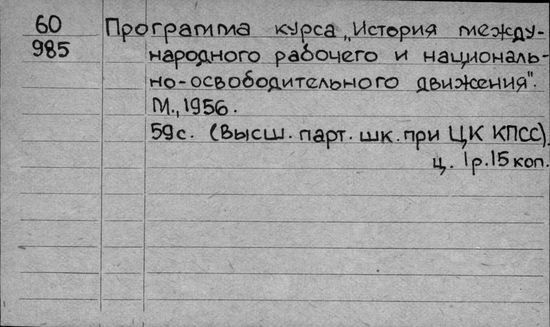 60 Программа курса „История между-
985 народного рабочего и националь-
но-освободительного движения".
М., 1956.
59 с. (Высш. парт. шк. при ЦК КПСС).
ц. 1 р. 15 коп.